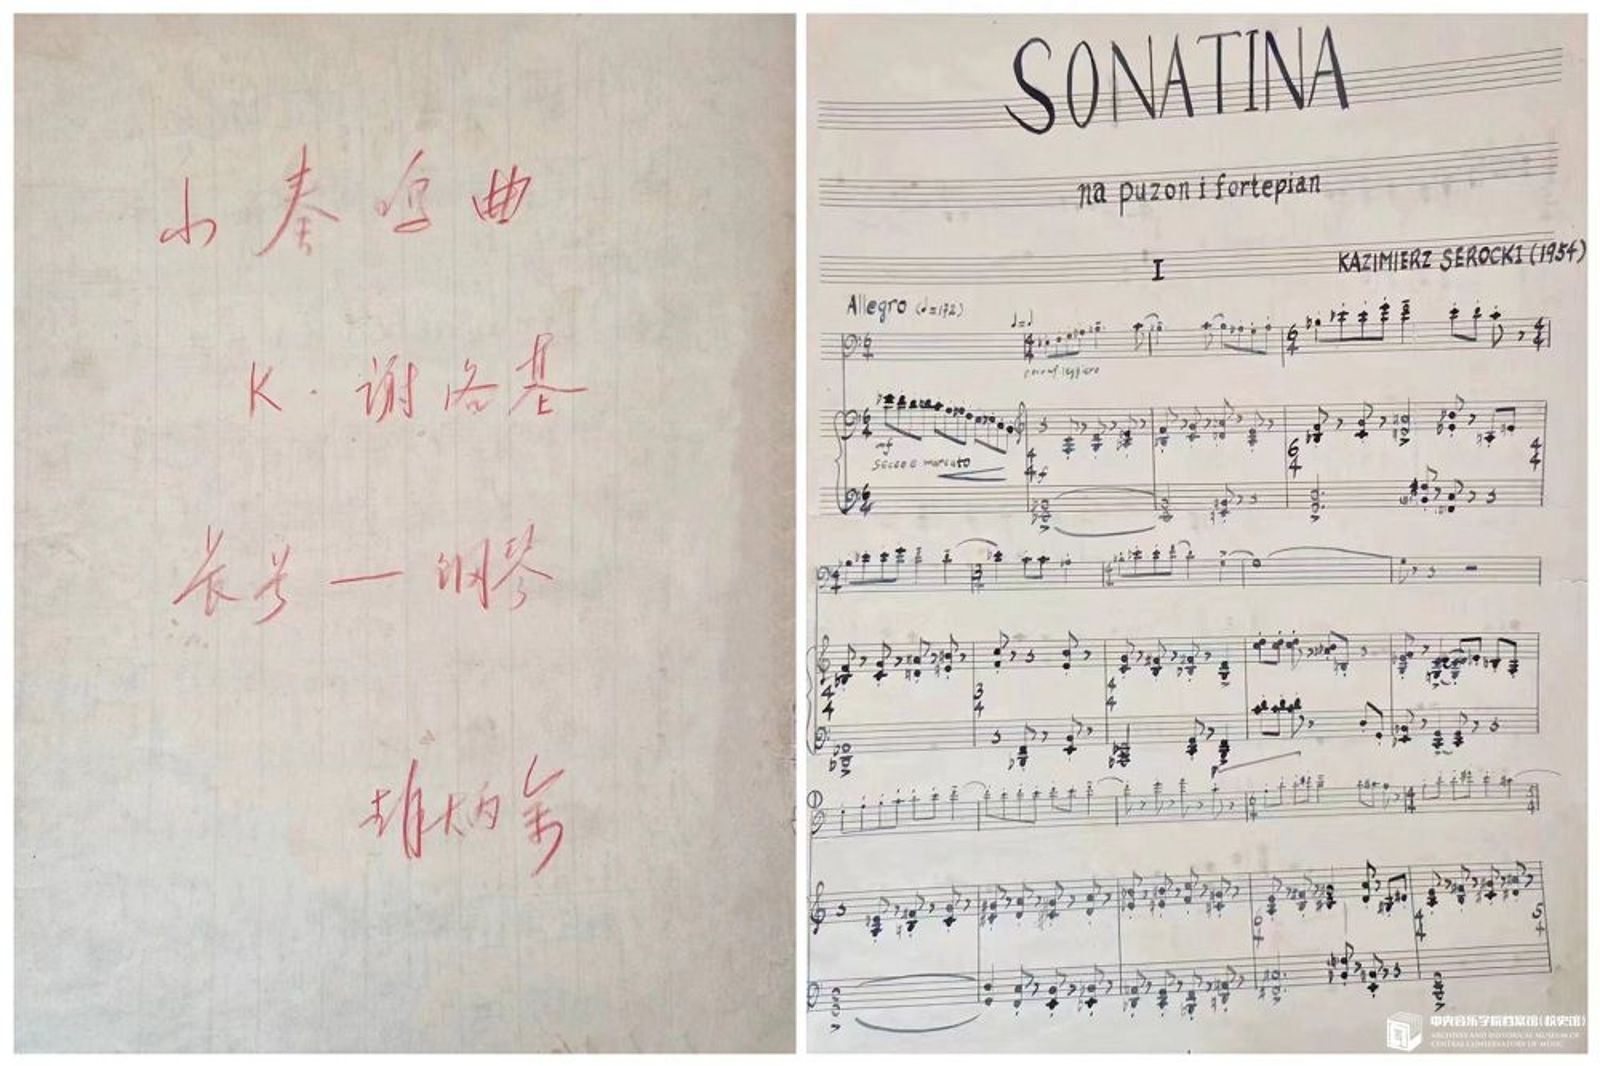 小奏鸣曲
K·谢洛基
长号—钢琴
胡炳余
SONATINA
na puzon i fortepian
I
KAZIMIERZ SEROCKI (1954)
Allegro (♩=172)
secco e marcato
中央音乐学院档案馆(校史馆)
ARCHIVES AND HISTORICAL MUSEUM OF
CENTRAL CONSERVATORY OF MUSIC